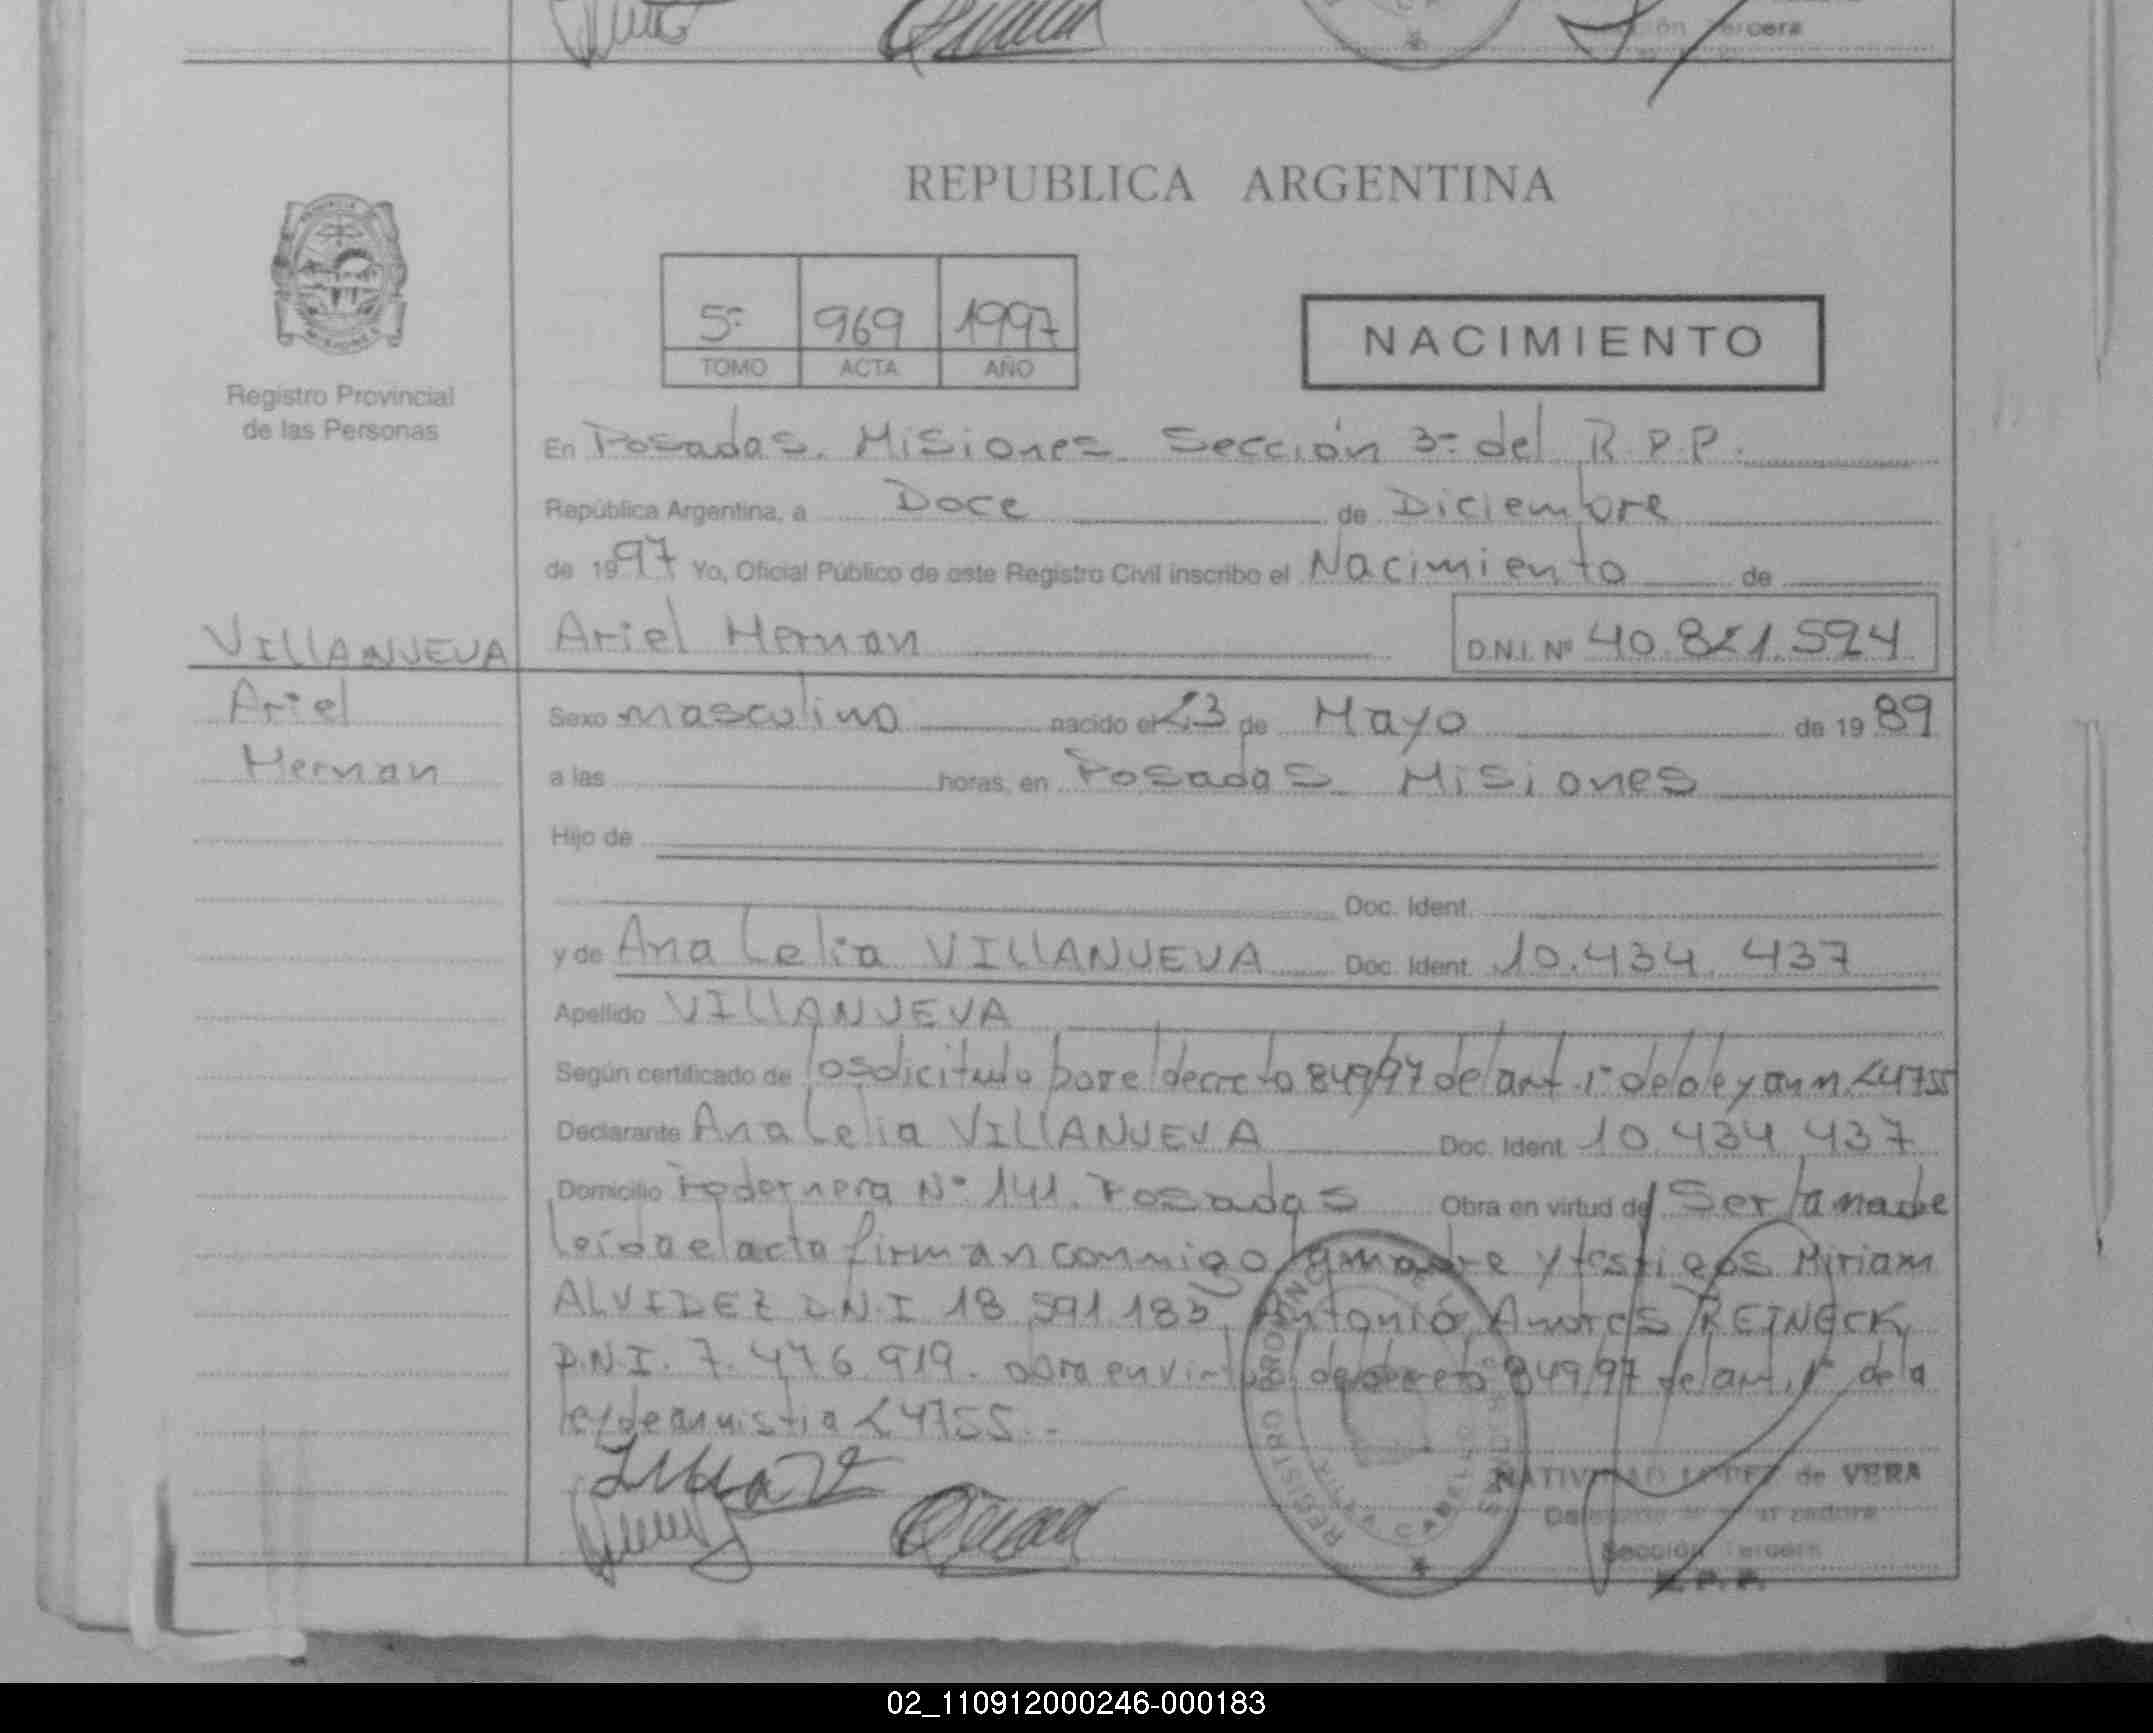 ón Tercera
REPUBLICA ARGENTINA
Registro Provincial
de las Personas
5º 969 1997
TOMO ACTA AÑO
NACIMIENTO
En Posadas. Misiones. Sección 3º del R.P.P.
República Argentina, a Doce de Diciembre
de 1997 Yo, Oficial Público de este Registro Civil inscribo el Nacimiento de
VILLANUEVA Ariel Hernan D.N.I. Nº 40.821.524
Ariel
Hernan
Sexo masculino nacido el 23 de Mayo de 1989
a las horas, en Posadas Misiones
Hijo de
Doc. Ident.
y de Ana Lelia VILLANUEVA Doc. Ident. 10.434.437
Apellido VILLANUEVA
Según certificado de lo solicitado por el decreto 849/97 del art. 1º de la ley amn. 24755
Declarante Ana Lelia VILLANUEVA Doc. Ident. 10.434.437
Domicilio Pedernera Nº 141. Posadas Obra en virtud de Ser la madre
leida el acta firman conmigo la madre y testigos Miriam
ALVIDEZ D.N.I 18.591.183 Antonio Andres REINECK
D.N.I. 7.476.919. obra en virtud del decreto 849/97 del art. 1º de la
ley de amnistia 24755.-
NATIVIDAD LOPEZ de VERA
Sección Tercera
R. P. P.
REGISTRO PROVINCIAL
02_110912000246-000183